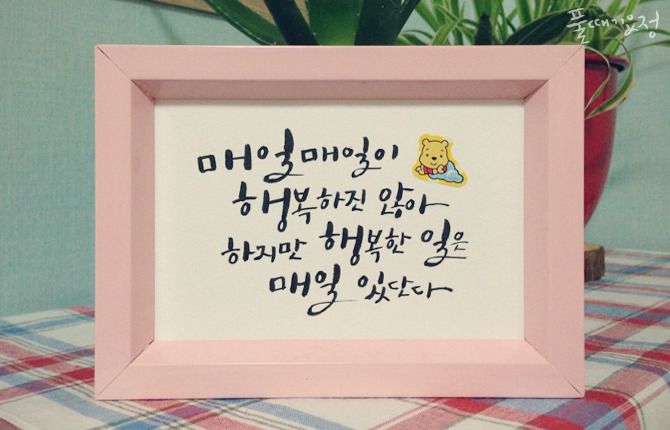 풀때기요정
매일매일이
행복하진 않아
하지만 행복한 일은
매일 있단다